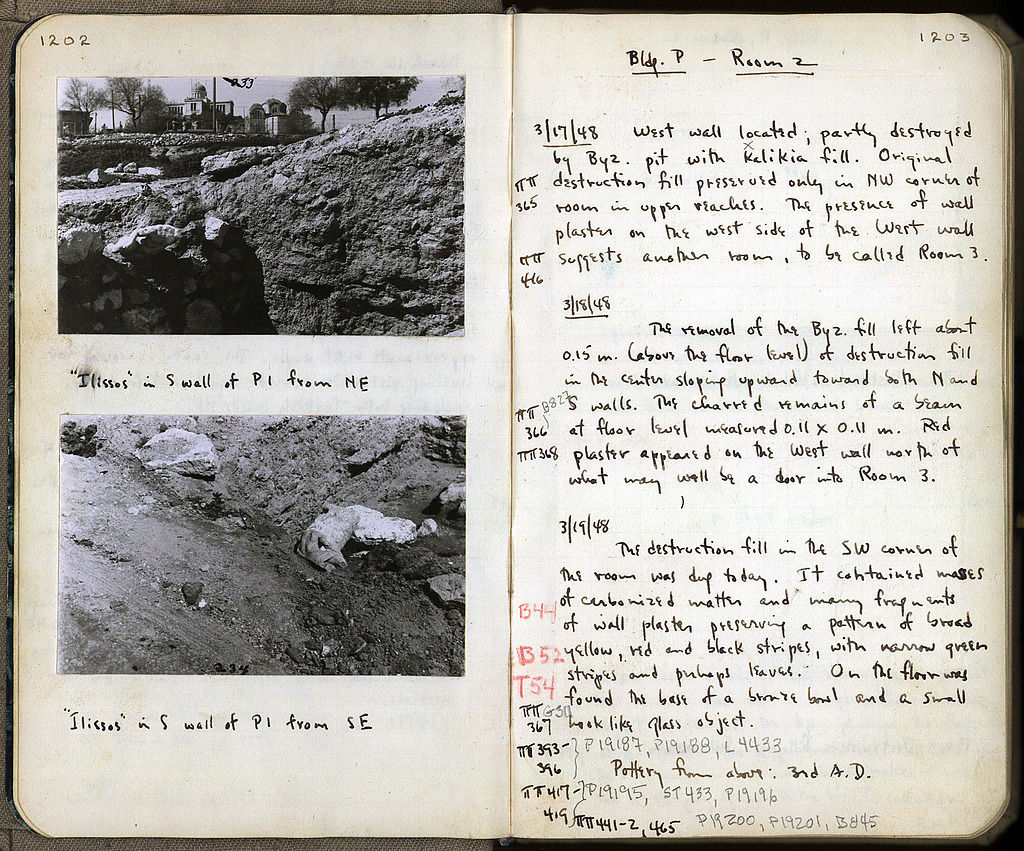 1202
233
"Ilissos" in S wall of P1 from NE
234
"Ilissos" in S wall of P1 from SE
1203
Bldg. P – Room 2
3/17/48 West wall located; partly destroyed
by Byz. pit with Kalikia fill. Original
ΠΠ destruction fill preserved only in NW corner of
365 room in upper reaches. The presence of wall
plaster on the west side of the West wall
ΠΠ suggests another room, to be called Room 3.
416
3/18/48
The removal of the Byz. fill left about
0.15 m. (above the floor level) of destruction fill
in the center sloping upward toward both N and
ΠΠ B827 S walls. The charred remains of a beam
366 at floor level measured 0.11 x 0.11 m. Red
ΠΠ 368 plaster appeared on the West wall north of
what may well be a door into Room 3.
3/19/48
The destruction fill in the SW corner of
the room was dug today. It contained masses
B44 of carbonized matter and many fragments
of wall plaster preserving a pattern of broad
B52 yellow, red and black stripes, with narrow green
T54 stripes and perhaps leaves. On the floor was
ΠΠ found the base of a bronze bowl and a small
367 hook like glass object.
ΠΠ 393- P19187, P19188, L4433
396 Pottery from above: 3rd A.D.
ΠΠ 417- P19195, ST 433, P19196
419 ΠΠ 441-2, 465 P19200, P19201, B845